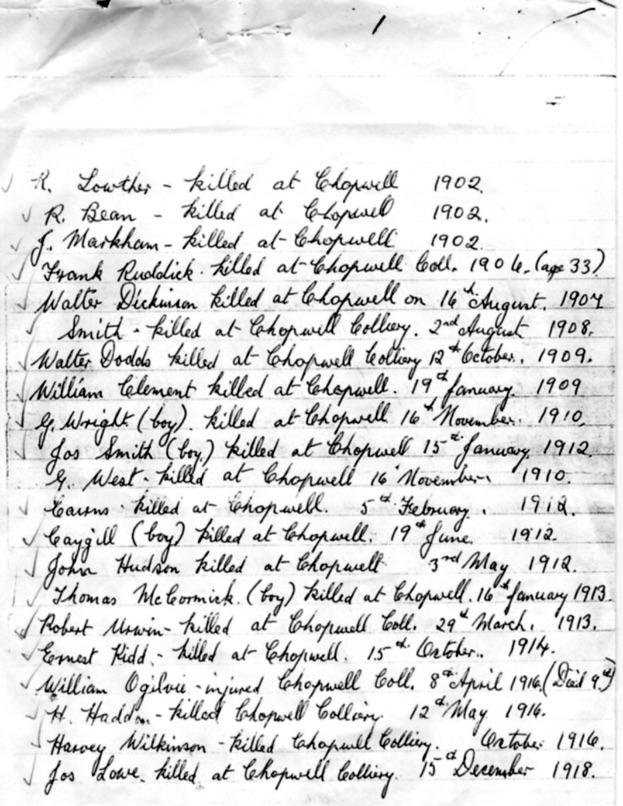 R. Lowther - killed at Chopwell 1902.
R. Bean - killed at Chopwell 1902.
J. Markham - killed at Chopwell 1902.
Frank Ruddick. killed at Chopwell Coll. 1906. (age 33)
Walter Dickinson killed at Chopwell on 16th August. 1907
Smith - killed at Chopwell Colliery. 2nd August 1908.
Walter Dodds killed at Chopwell Colliery 12th October. 1909.
William Clement killed at Chopwell. 19th January. 1909
G. Wright (boy). killed at Chopwell 16th November. 1910.
Jos Smith (boy) killed at Chopwell 15th January 1912.
G. West - killed at Chopwell 16th November. 1910.
Cairns - killed at Chopwell. 5th February. 1912.
Caygill (boy) killed at Chopwell. 19th June. 1912.
John Hudson killed at Chopwell 3rd May 1912.
Thomas McCormick. (boy) killed at Chopwell. 16th January 1913.
Robert Urwin - killed at Chopwell Coll. 29th March. 1913.
Ernest Kidd. - killed at Chopwell. 15th October. 1914.
William Ogilvie - injured Chopwell Coll. 8th April 1916. (Died 9th)
H. Haddon - killed Chopwell Colliery 12th May 1916.
Harvey Wilkinson - killed Chopwell Colliery. October 1916.
Jos Lowe. killed at Chopwell Colliery. 15th December 1918.